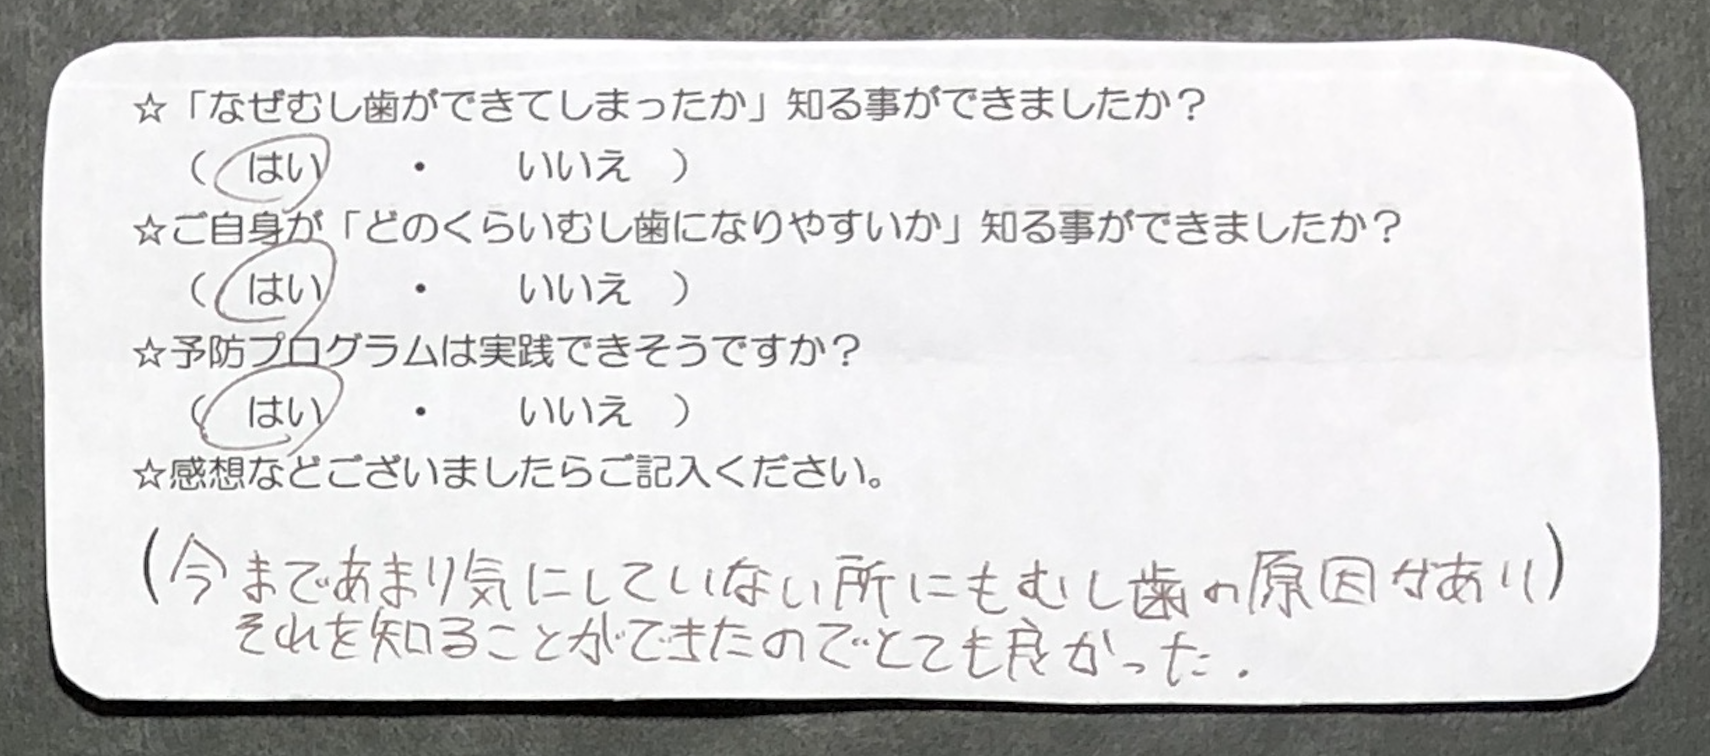 ☆「なぜむし歯ができてしまったか」知る事ができましたか？
（ はい ・ いいえ ）
☆ご自身が「どのくらいむし歯になりやすいか」知る事ができましたか？
（ はい ・ いいえ ）
☆予防プログラムは実践できそうですか？
（ はい ・ いいえ ）
☆感想などございましたらご記入ください。
（今まであまり気にしていない所にもむし歯の原因があり）
それを知ることができたのでとても良かった.